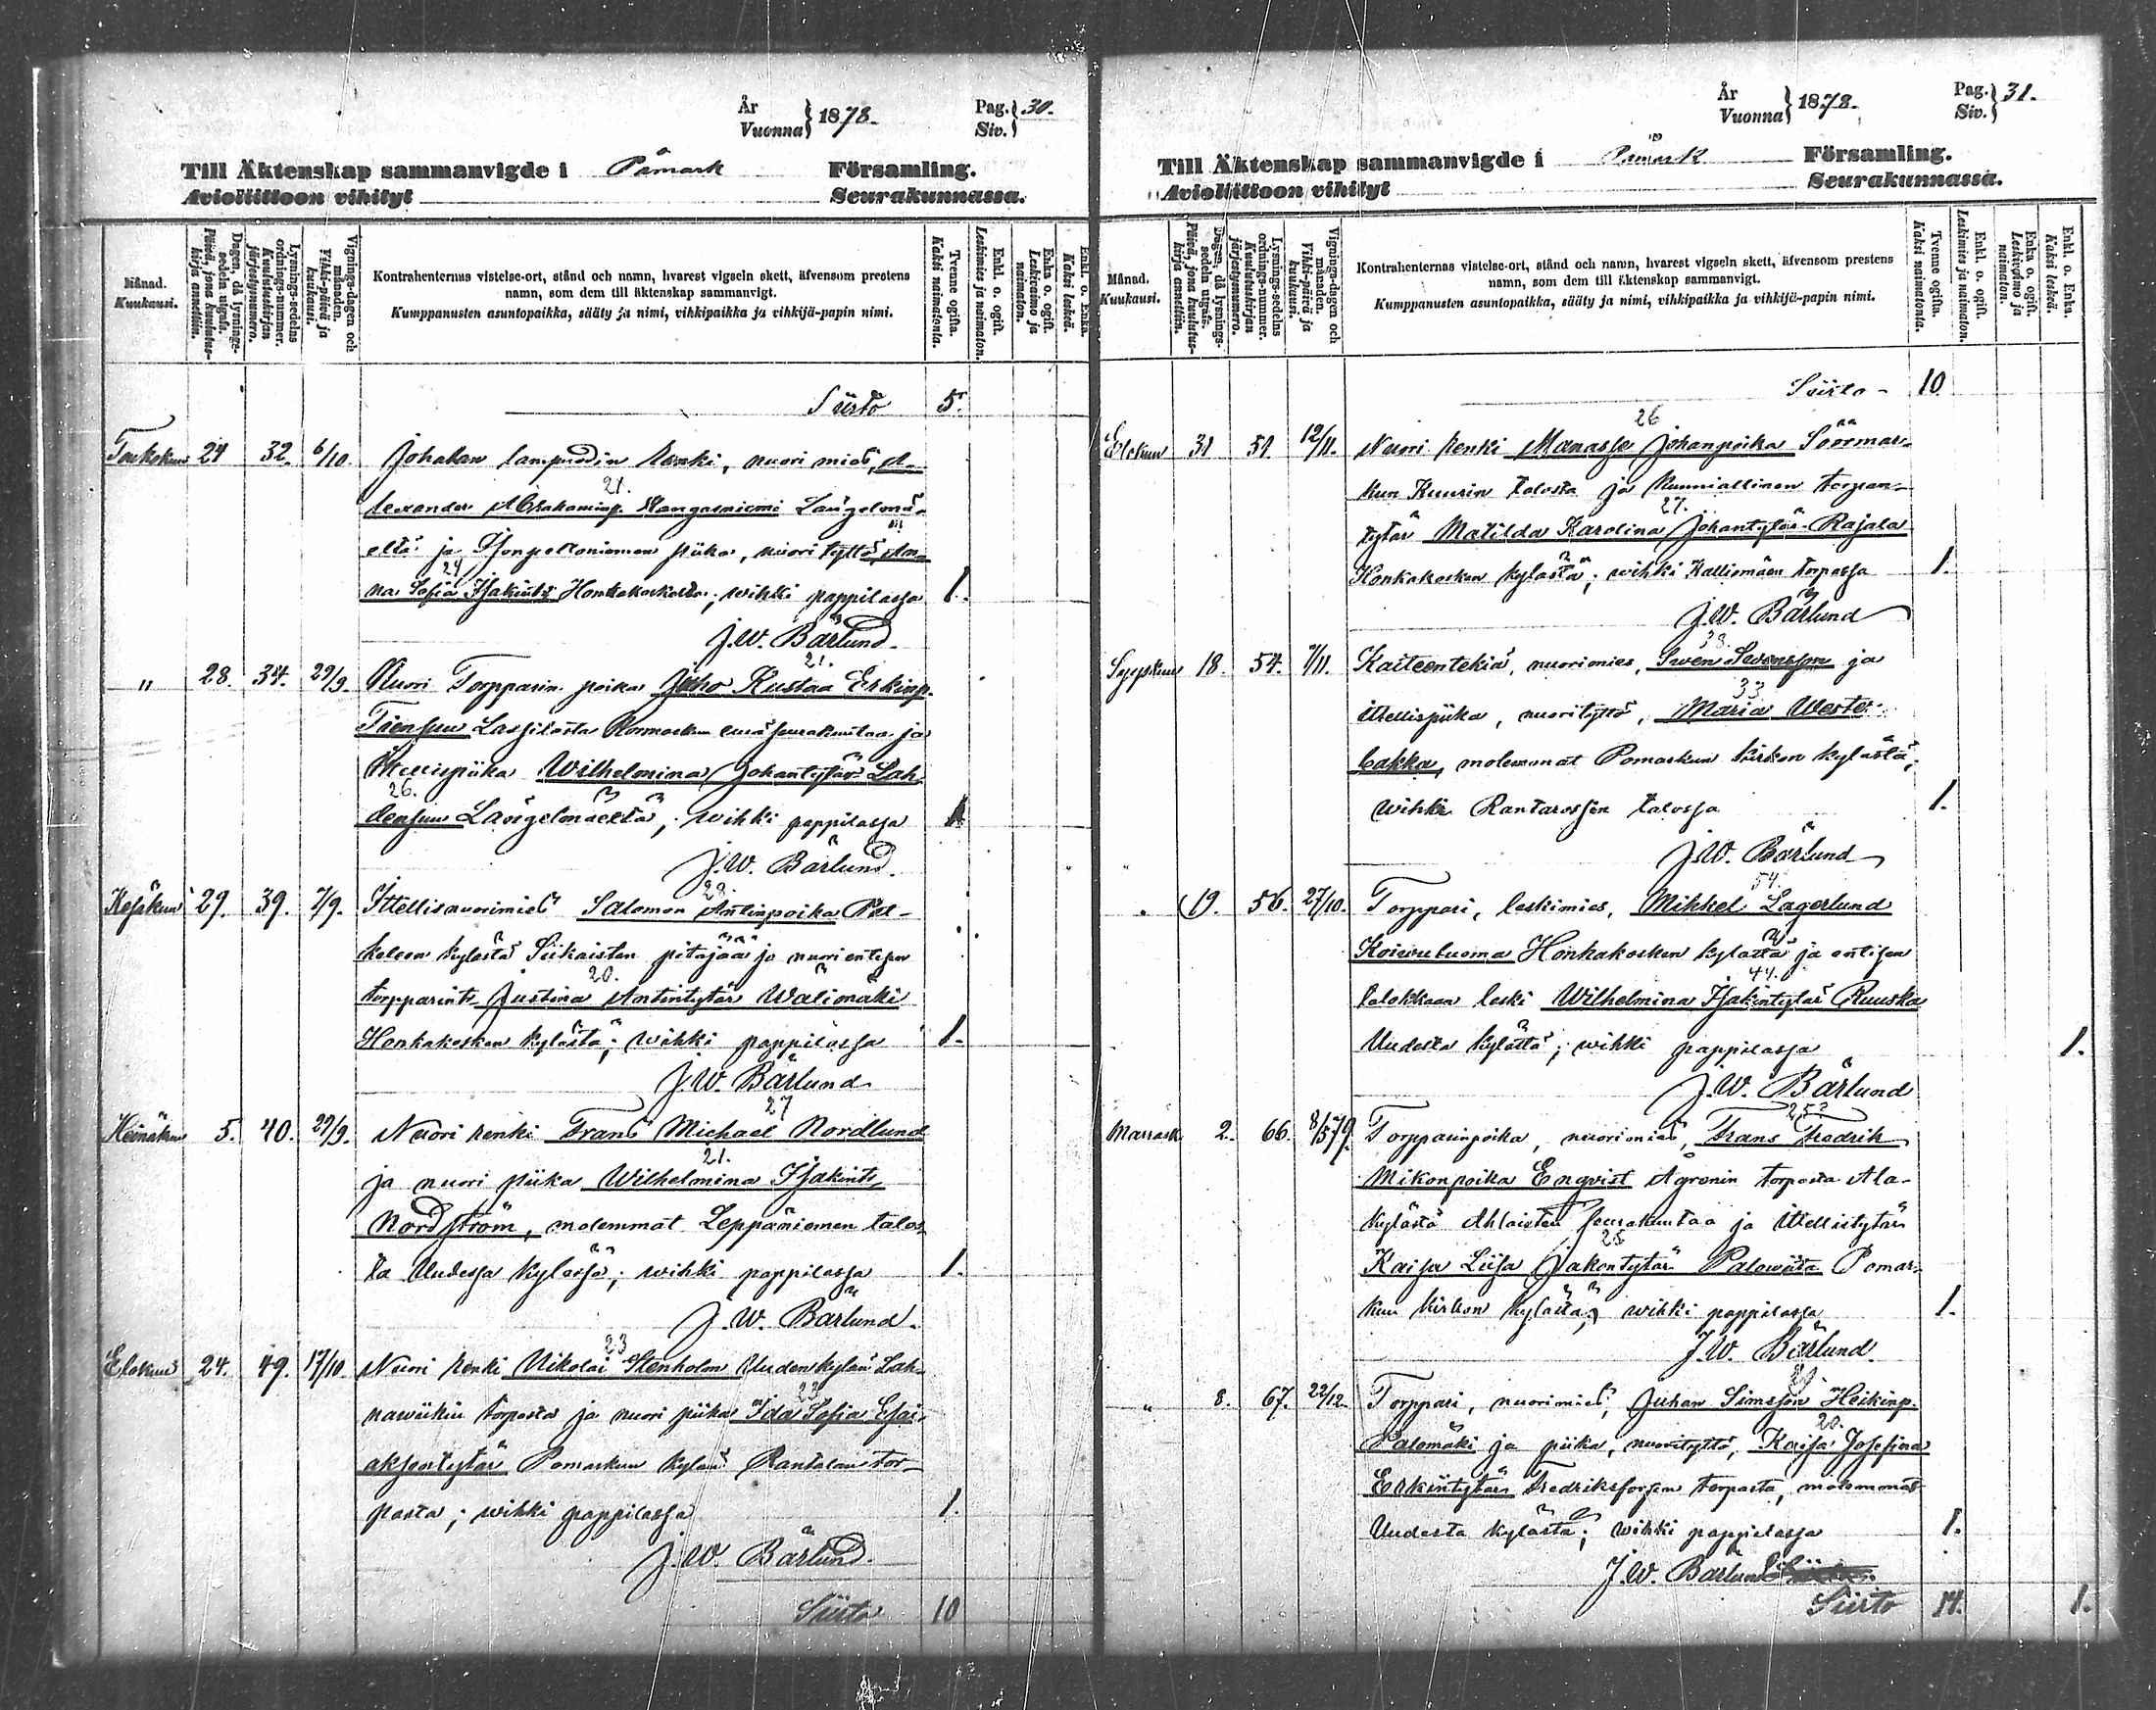 År
Vuonna } 1878.
Pag.
Siv. } 30.
Till Äktenskap sammanvigde i Påmark Församling.
Avioliittoon vihityt Seurakunnassa.
Månad.
Kuukausi.
Dagen, då lysnings-sedeln utgafs.
Päivä, jona kuulutus-kirja annettiin.
Lysnings-sedelns ordnings-nummer.
Kuulutuskirjan järjestysnumero.
Vignings-dagen och månaden.
Vihki-päivä ja kuukausi.
Kontrahenternas vistelse-ort, stånd och namn, hvarest vigseln skett, äfvensom prestens
namn, som dem till äktenskap sammanvigt.
Kumppanusten asuntopaikka, sääty ja nimi, vihkipaikka ja vihkijä-papin nimi.
Tvenne ogifta.
Kaksi naimatonta.
Enkl. o. ogift.
Leskimies ja naimaton.
Enka o. ogift.
Leskivaimo ja naimaton.
Enkl. o. Enka.
Kaksi leskeä.
Siirto 5.
Toukokuu 24 32. 6/10. Johalan lampuodin renki, nuori mies, A-
21.
lexander Abrahaminp. Kangasniemi Längelmä-
eltä ja Isonpeltoniemen piika, nuori tyttö, An-
24
na Sofia Isakint. Honkakoskelta; wihki pappilassa 1.
J. W. Bärlund.
21.
" 28. 34. 29/9. Nuori Torpparin poika Juho Kustaa Erkinp.
Tuensuu Lassilasta Normarkun emäseurakuntaa ja
Itellispiika Wilhelmina Johantytär Lah-
26.
densuu Längelmäeltä; wihki pappilassa 1
J. W. Bärlund.
29.
Kesäkuu 29. 39. 7/9. Itellisnuorimies Salomon Antinpoika
kylästä Siikaisten pitäjää ja nuori entisen
20.
torpparint. Justina Antintytär Walimäki
Honkakosken kylästä; wihki pappilassa 1.
J. W. Bärlund
27
Heinäkuu 5. 40. 29/9. Nuori renki Frans Michael Nordlund
21.
ja nuori piika Wilhelmina Isakint.
Nordström, molemmat Leppäniemen talos-
ta Uudessa kylässä; wihki pappilassa 1.
J. W. Bärlund.
23
Elokuu 24. 49. 17/10. Nuori renki Nikolai Stenholm Uudenkylän Lah-
23
nawiikin torpasta ja nuori piika Ida Sofia Esai-
aksentytär Pomarkun kylän Rantalan tor-
pasta; wihki pappilassa 1.
J. W. Bärlund.
Siirto 10
År
Vuonna } 1878.
Pag.
Siv. } 31.
Till Äktenskap sammanvigde i Påmark Församling.
Avioliittoon vihityt Seurakunnassa.
Månad.
Kuukausi.
Dagen, då lysnings-sedeln utgafs.
Päivä, jona kuulutus-kirja annettiin.
Lysnings-sedelns ordnings-nummer.
Kuulutuskirjan järjestysnumero.
Vignings-dagen och månaden.
Vihki-päivä ja kuukausi.
Kontrahenternas vistelse-ort, stånd och namn, hvarest vigseln skett, äfvensom prestens
namn, som dem till äktenskap sammanvigt.
Kumppanusten asuntopaikka, sääty ja nimi, vihkipaikka ja vihkijä-papin nimi.
Tvenne ogifta.
Kaksi naimatonta.
Enkl. o. ogift.
Leskimies ja naimaton.
Enka o. ogift.
Leskivaimo ja naimaton.
Enkl. o. Enka.
Kaksi leskeä.
Siirto - 10
26
Elokuu 31 51 12/11. Nuori renki Manasse Johanpoika Söörmar-
kun Kuurin talosta ja kunniallinen torpan-
27.
tytär Matilda Karolina Johantytär Rajala
Honkakosken kylästä; wihki Kalliomäen torpassa 1.
J. W. Bärlund
38.
Syyskuu 18. 54. 7/11. Kaiteentekiä, nuorimies, Swen Swensson ja
33.
itellispiika, nuorityttö, Maria Wester-
bakka, molemmat Pomarkun kirkon kylästä;
wihki Rantarossin talossa 1.
J. W. Bärlund
54.
" 19. 56. 27/10. Torppari, leskimies, Mikkel Lagerlund
Koiwuluoma Honkakosken kylästä ja entisen
44.
talokkaan leski Wilhelmina Isakintytär Ruuska
Uudesta kylästä; wihki pappilassa 1.
J. W. Bärlund
25?
Marrask. 2. 66. 8/5 79. Torpparinpoika, nuorimies, Frans Fredrik
Mikonpoika Enqvist Ågrenin torpasta Ala-
kylästä Ahlaisten seurakuntaa ja itellistytär
25
Kaisa Liisa Jakontytär Palowiita Pomar-
kun kirkon kylästä; wihki pappilassa 1.
J. W. Bärlund.
" 8. 67. 22/12. Torppari, nuorimies, Juhan Simsson Heikinp.
20.
Palomäki ja piika, nuorityttö, Kaisa Josefina
Erkintytär Fredriksforsin torpasta, molemmat
Uudesta kylästä; wihki pappilassa 1.
J. W. Bärlund
Siirto 14. 1.